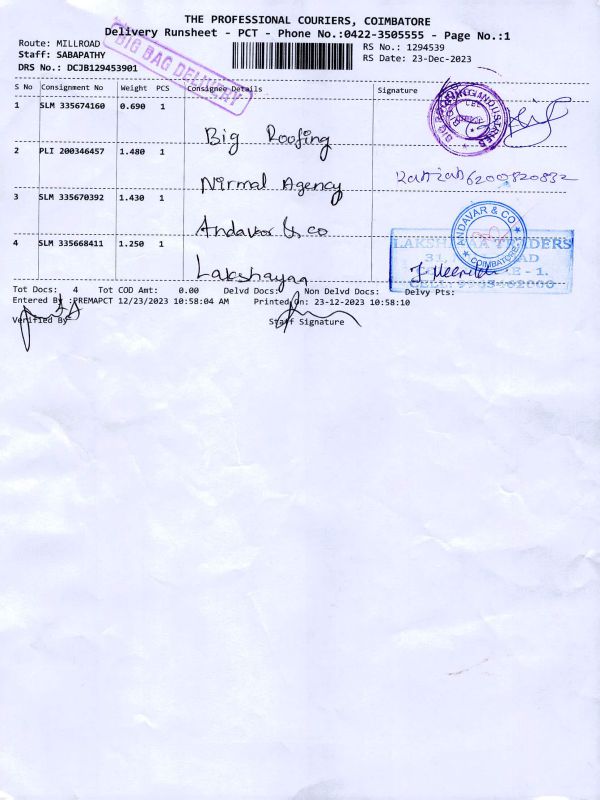 THE PROFESSIONAL COURIERS, COIMBATORE
Delivery Runsheet - PCT - Phone No.:0422-3505555 - Page No.:1
Route: MILLROAD
RS No.: 1294539
Staff: SABAPATHY
RS Date: 23-Dec-2023
DRS No.: DCJB129453901
BIG BAG DELIVERY
S No Consignment No Weight PCS Consignee Details Signature
1 SLM 335674160 0.690 1
Big Roofing
2 PLI 200346457 1.480 1
Nirmal Agency
6200820832
3 SLM 335670392 1.430 1
Andavar & co
ANDAVAR & CO
COIMBATORE
4 SLM 335668411 1.250 1
Lakshayaa
Tot Docs: 4 Tot COD Amt: 0.00 Delvd Docs: Non Delvd Docs: Delvy Pts:
Entered By :PREMAPCT 12/23/2023 10:58:04 AM Printed On: 23-12-2023 10:58:10
Verified By
Staff Signature